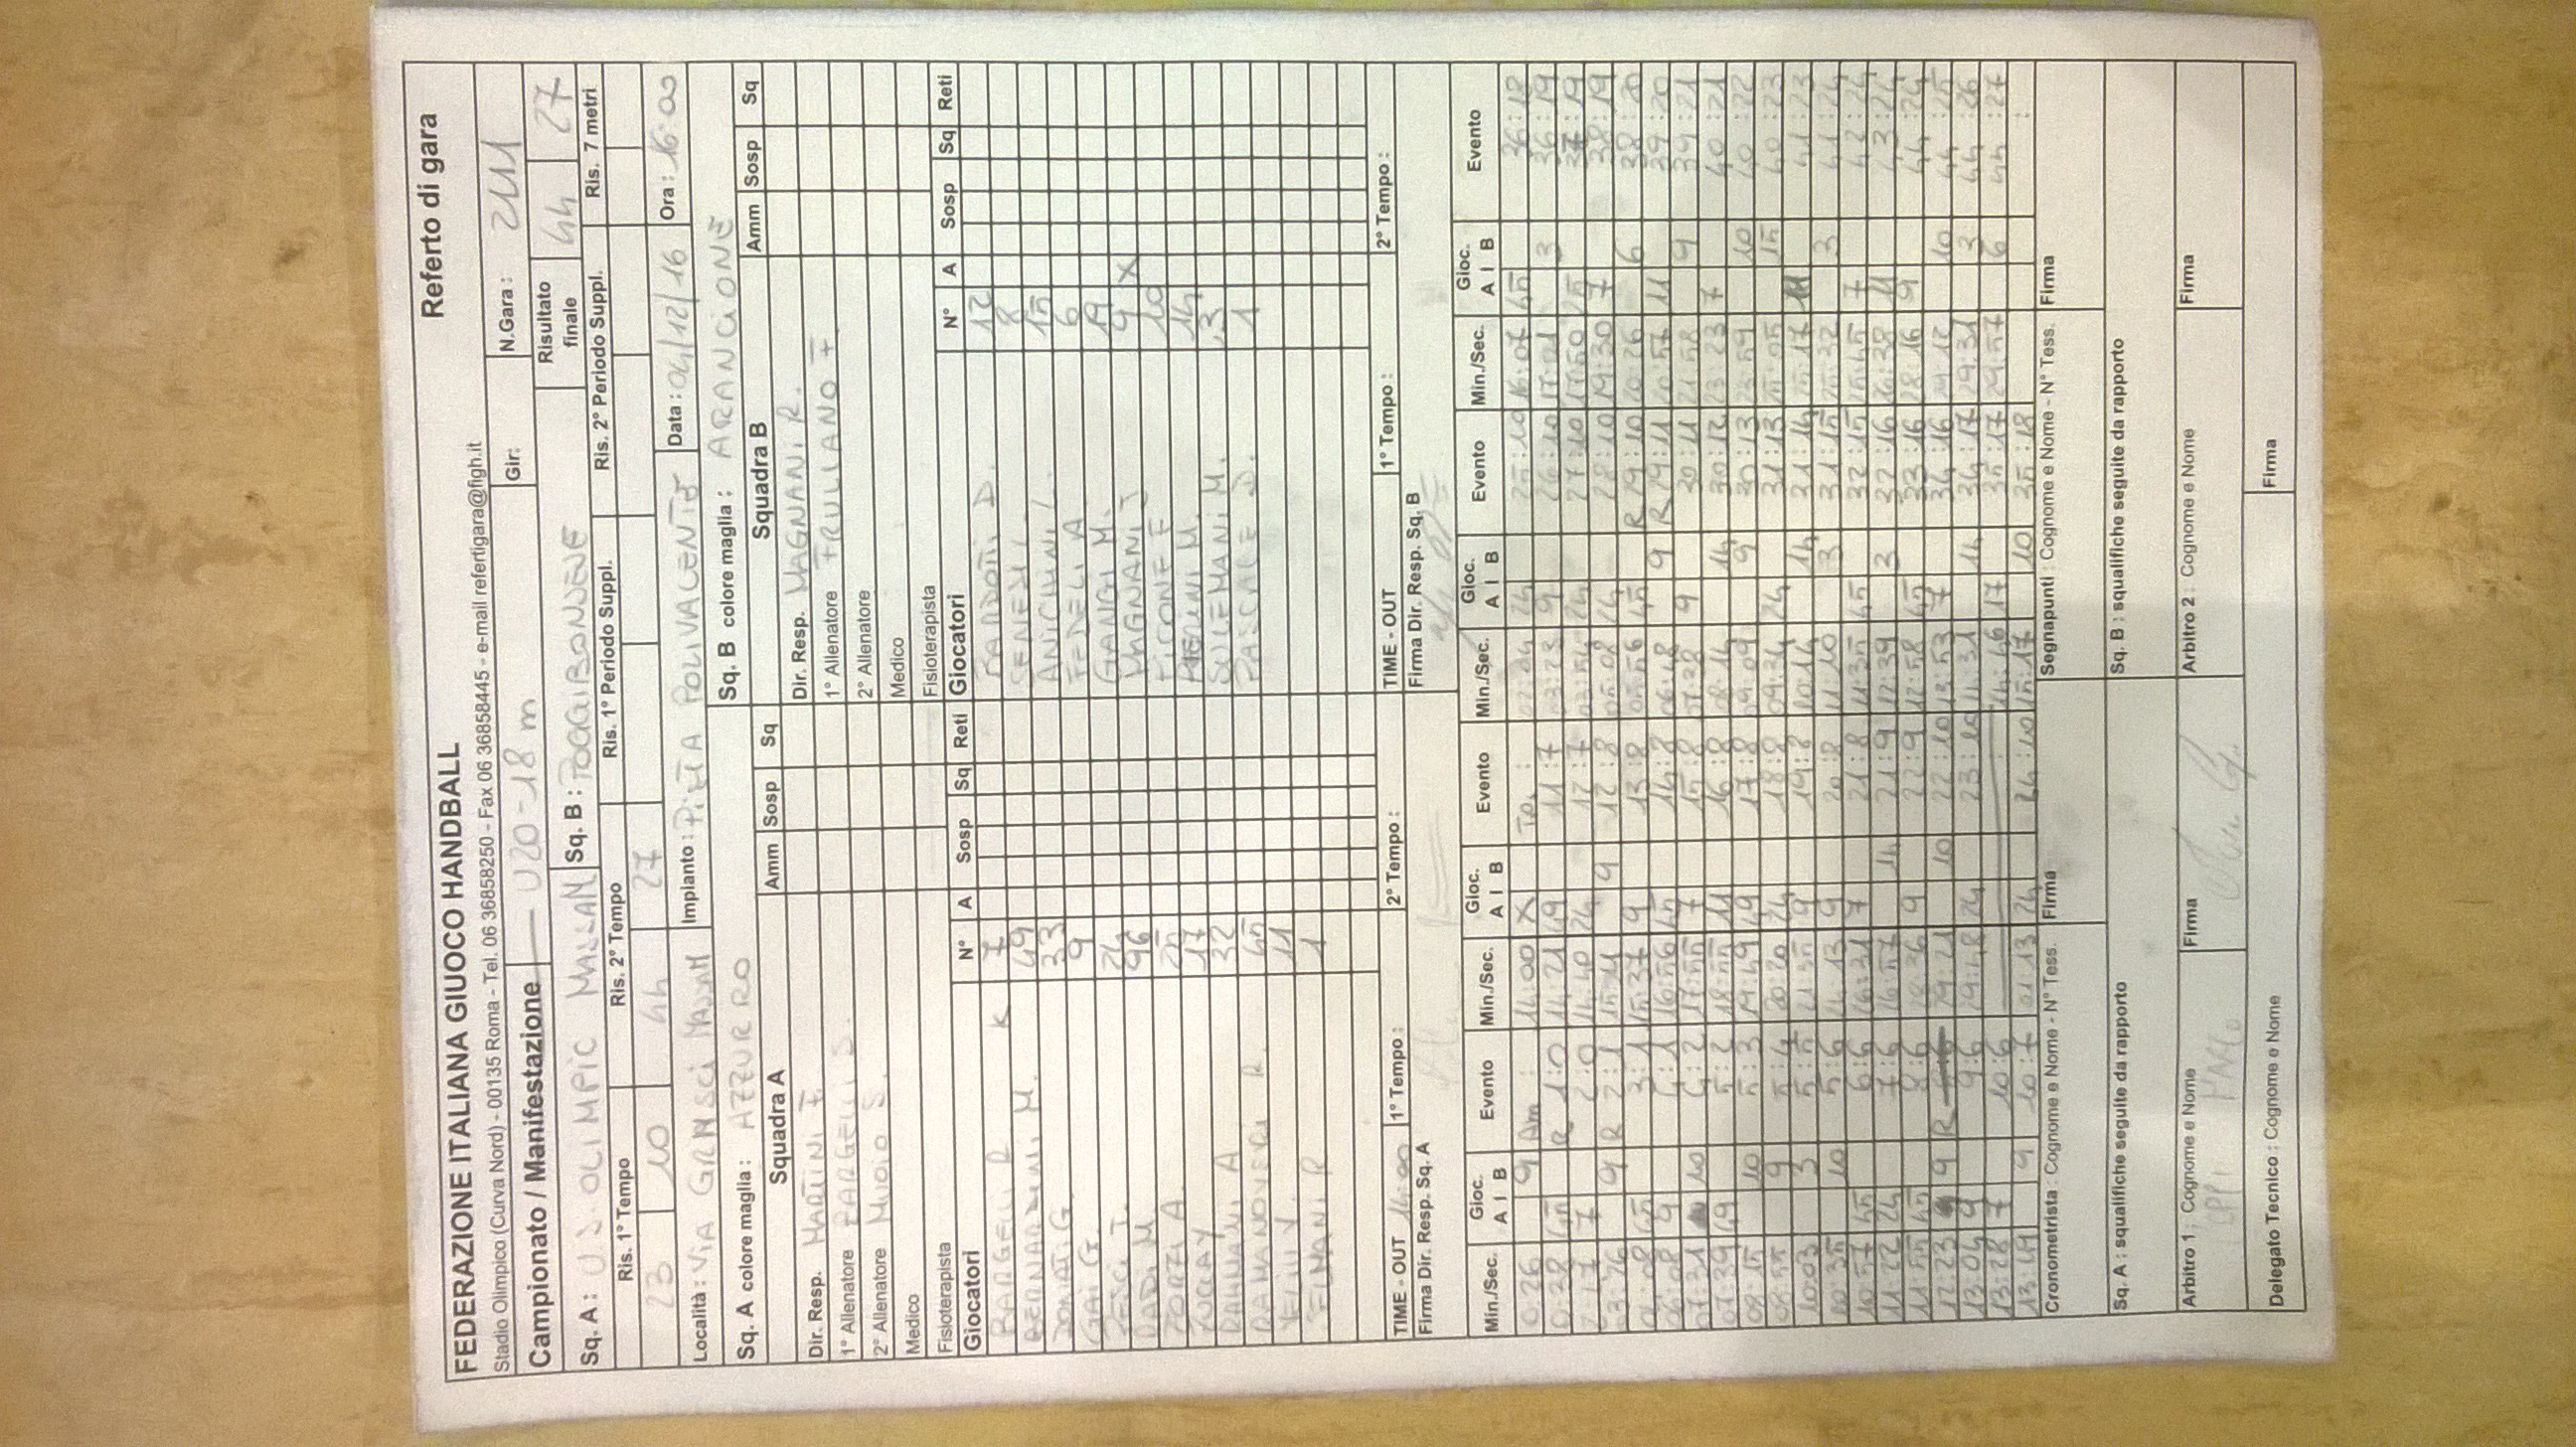 FEDERAZIONE ITALIANA GIUOCO HANDBALL Referto di gara
Stadio Olimpico (Curva Nord) - 00135 Roma - Tel. 06 36858250 - Fax 06 36858445 - e-mail refertigara@figh.it
Campionato / Manifestazione U20 - 18 m Gir: N.Gara : 2411
Sq. A : U.S. OLIMPIC MASSAM Sq. B : POGGIBONSESE Risultato finale 44 27
Ris. 1° Tempo Ris. 2° Tempo Ris. 1° Periodo Suppl. Ris. 2° Periodo Suppl. Ris. 7 metri
23 10 44 27
Località : VIA GRAMSCI Impianto : POLIVALENTE Data : 04/12/16 Ora : 16:00
Sq. A colore maglia : AZZURRO Sq. B colore maglia : ARANCIONE
Squadra A Amm Sosp Sq Squadra B Amm Sosp Sq
Dir. Resp. MARTINI F. Dir. Resp. MAGNANI R.
1° Allenatore BARGELLI S. 1° Allenatore FRULLANO F
2° Allenatore MUOIO S. 2° Allenatore
Medico Medico
Fisioterapista Fisioterapista
Giocatori N° A Sosp Sq Reti Giocatori N° A Sosp Sq Reti
BARGELLI R K 7 12
BERNARDINI M. 49 SENESI L 8
DONATI G. 33 ANICHINI L. 15
GAI G. 9 FEDELI A. 6
PESCI T. 24 GANGI M. 19
DADI M. 96 MAGNANI T 9 X
25 10
17 14
DAHMANI A 32 SULEMANI M. 3
RAMANOVSCI R. 45 PASCALE D. 1
VELIU V. 11
SELMANI R 1
TIME - OUT 14:00 1° Tempo : 2° Tempo : TIME - OUT 1° Tempo : 2° Tempo :
Firma Dir. Resp. Sq. A Firma Dir. Resp. Sq. B
Min./Sec. Gioc. A I B Evento Min./Sec. Gioc. A I B Evento Min./Sec. Gioc. A I B Evento Min./Sec. Gioc. A I B Evento
0:26 9 Am : 14:00 X TO : 02:04 24 25:10 16:07 45 36:18
0:38 45 R 1:0 14:21 49 11:7 03:23 9 26:10 17:01 3 36:19
7 2:0 14:40 24 12:7 03:54 24 27:10 17:50 25 37:19
03:26 9 R 2:1 15:11 9 12:8 05:08 24 28:10 19:30 7 38:19
45 3:1 15:37 9 13:8 05:56 45 R 29:10 20:26 6 38:20
9 4:1 16:56 45 14:8 06:48 9 R 29:11 20:57 11 39:20
07:31 10 4:2 17:55 7 15:8 07:38 9 30:11 21:58 9 39:21
07:39 49 5:2 18:55 11 16:8 08:14 14 30:12 23:23 7 40:21
08:15 10 5:3 19:49 49 17:8 09:09 9 30:13 23:59 10 40:22
08:55 9 5:4 20:20 24 18:8 09:34 24 31:13 15 40:23
10:03 3 5:5 21:35 9 19:8 10:14 14 31:14 25:17 11 41:23
10:35 10 5:6 9 20:8 11:10 3 31:15 25:32 3 41:24
10:57 45 6:6 7 21:8 11:35 45 32:15 25:45 7 42:24
11:22 24 7:6 14 21:9 12:39 3 32:16 26:38 11 43:24
11:55 45 8:6 9 22:9 12:58 45 33:16 28:16 9 44:24
12:23 9 R 29:21 10 22:10 13:53 7 34:16 29:12 10 44:25
13:04 9 9:6 29:48 24 23:10 14 34:17 29:31 3 44:26
13:28 7 10:6 14:46 17 35:17 29:57 6 44:27
13:49 9 10:7 01:13 24 24:10 15:17 10 35:18 :
Cronometrista : Cognome e Nome - N° Tess. Firma Segnapunti : Cognome e Nome - N° Tess. Firma
Sq. A : squalifiche seguite da rapporto Sq. B : squalifiche seguite da rapporto
Arbitro 1 ; Cognome e Nome Firma Arbitro 2 : Cognome e Nome Firma
Delegato Tecnico : Cognome e Nome Firma